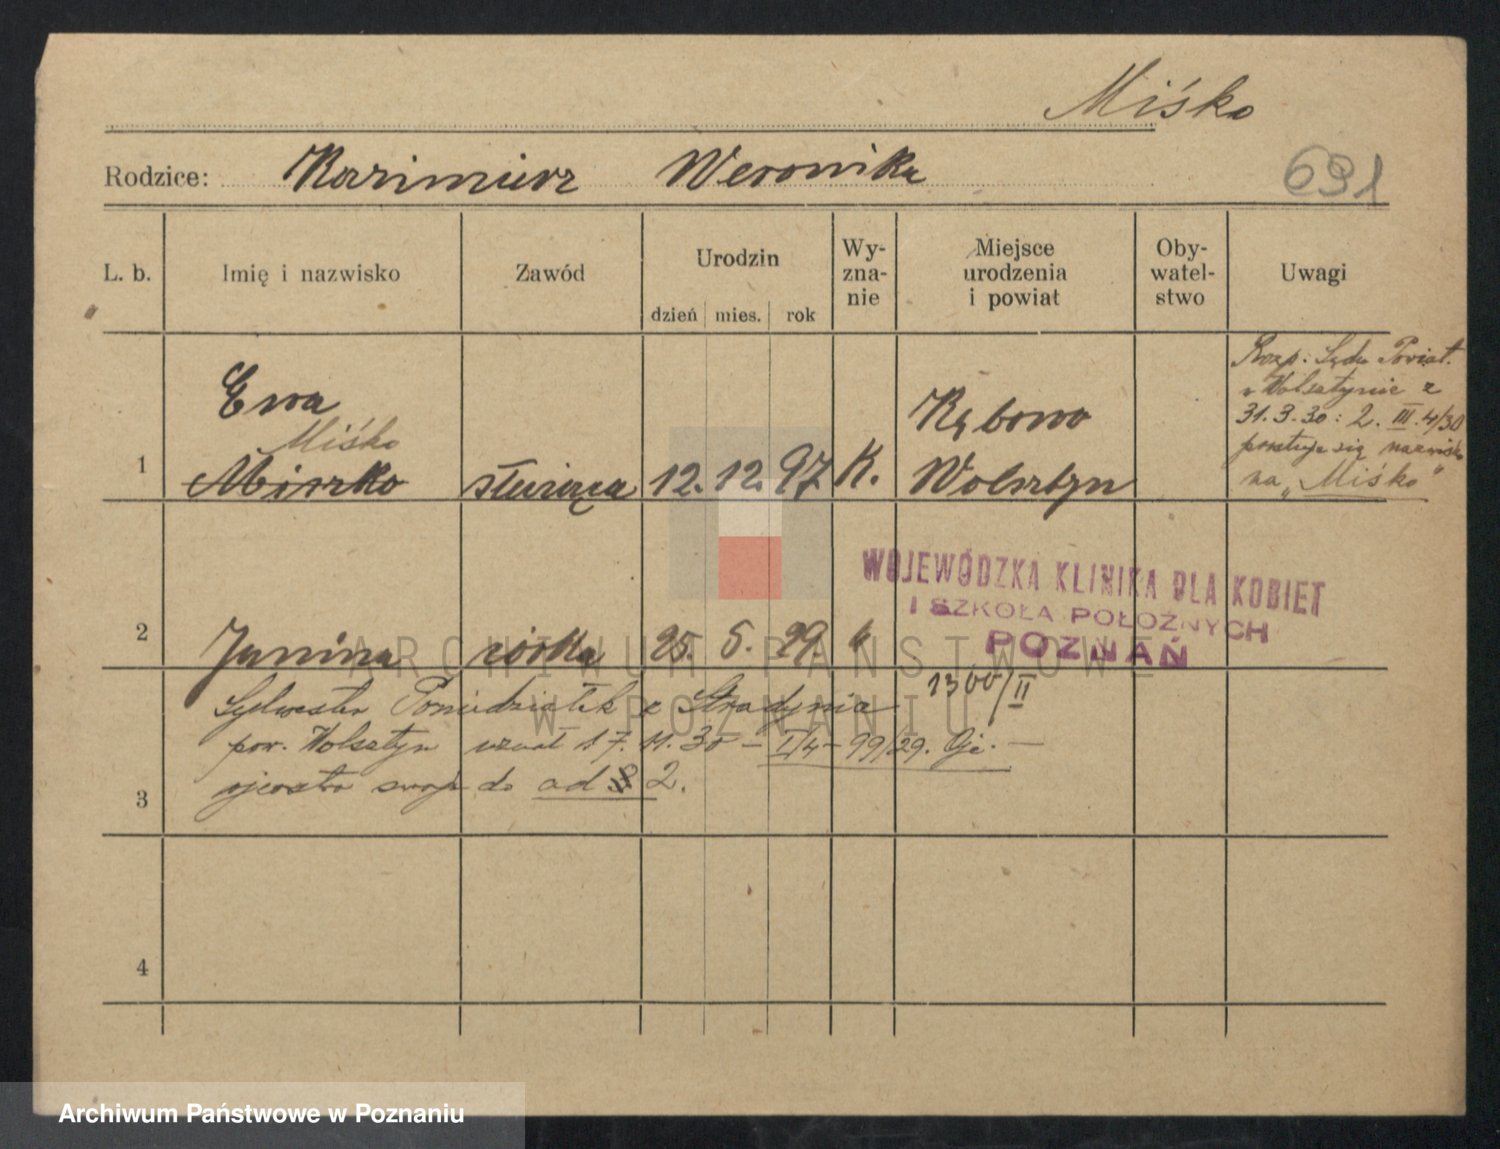 Miśko
Rodzice: Kazimierz Weronika
691
L. b. Imię i nazwisko Zawód Urodzin dzień mies. rok Wy-zna-nie Miejsce urodzenia i powiat Oby-watel-stwo Uwagi
Ewa
Miśko
1 Miszko służąca 12. 12. 97 K. Kębowo Wolsztyn
Rozp. Sądu Powiat.
w Wolsztynie z
31.3.30: 2. III. 4/30
prostuje się nazwisko
na „Miśko"
WOJEWÓDZKA KLINIKA DLA KOBIET
I SZKOŁA POŁOŻNYCH
POZNAŃ
2 Janina córka 25. 5. 29. k
1300/II
Sylwester Poniedziałek z Stradynia
pow. Wolsztyn uznał 17. 11. 30 – I/4 – 99/29. Oje. –
3 ojcostwo swoje do ad 2.
4
ARCHIWUM PAŃSTWOWE
W POZNANIU
Archiwum Państwowe w Poznaniu